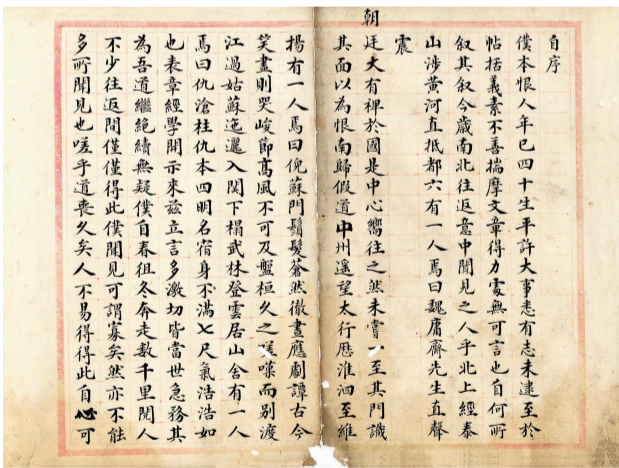 自序
僕本恨人年已四十生平許大事悉有志未逮至於
帖括義素不善揣摩文章得力處無可言也自何所
叙其叙今歲南北往返意中聞見之人乎北上經泰
山涉黄河直抵都六有一人焉曰魏庸齋先生直聲
震
朝廷大有裨於國是中心嚮往之然未嘗一至其門識
其面以為恨南歸假道中州遥望太行歷淮泗至維
揚有一人焉曰倪蘇門鬚髮蒼然徹晝應劇譚古今
笑盡則哭峻節高風不可及盤桓久之嘆而別渡
江過姑蘇迤邐入関下榻武林登雲居山舍有一人
焉曰仇滄柱仇本四明名宿身不滿七尺氣活浩如
也表章經學開示來兹立言多激切皆當世急務其
為吾道繼絶續無疑僕自春徂冬奔走数千里閲人
不少往返間僅僅得此僕聞見可謂寡矣然亦不能
多所聞見也嗟乎道喪久矣人不易得得此自心可